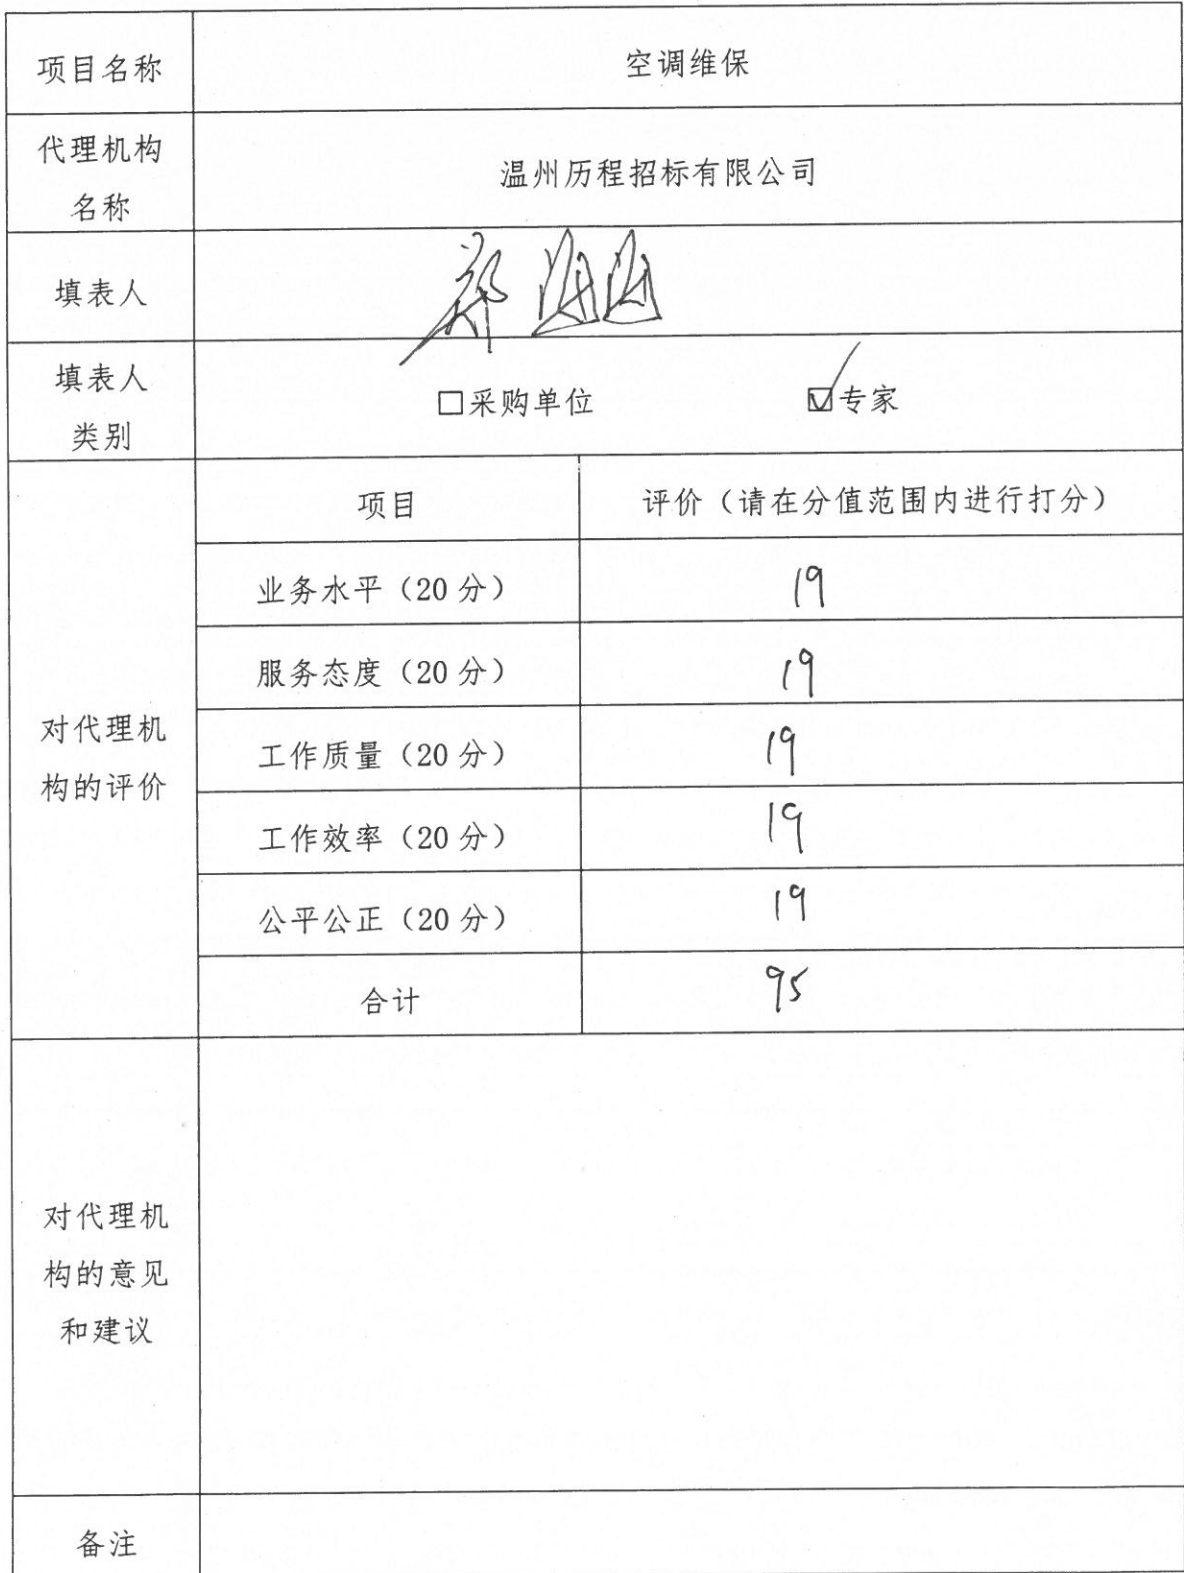 项目名称
空调维保
代理机构
名称
温州历程招标有限公司
填表人
郑
填表人
类别
□采购单位 ☑专家
对代理机
构的评价
项目 评价（请在分值范围内进行打分）
业务水平（20 分） 19
服务态度（20 分） 19
工作质量（20 分） 19
工作效率（20 分） 19
公平公正（20 分） 19
合计 95
对代理机
构的意见
和建议
备注